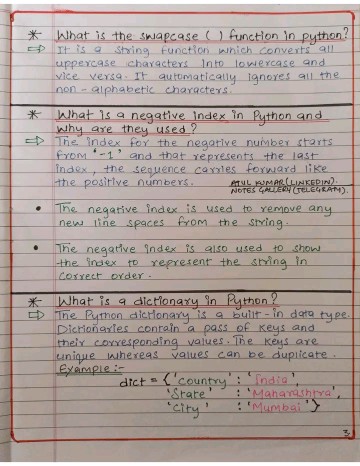 * What is the swapcase ( ) function in python?
⇒ It is a string function which converts all
uppercase characters into lowercase and
vice versa. It automatically ignores all the
non-alphabetic characters.
* What is a negative index in Python and
why are they used?
⇒ The index for the negative number starts
from '-1' and that represents the last
index, the sequence carries forward like
the positive numbers. ATUL KUMAR (LINKEDIN).
NOTES GALLERY (TELEGRAM).
• The negative index is used to remove any
new line spaces from the string.
• The negative index is also used to show
the index to represent the string in
correct order.
* What is a dictionary in Python?
⇒ The Python dictionary is a built-in data type.
Dictionaries contain a pass of keys and
their corresponding values. The keys are
unique whereas values can be duplicate.
Example :-
dict = {'country' : 'India',
'State' : 'Maharashtra',
'City' : 'Mumbai'}
3